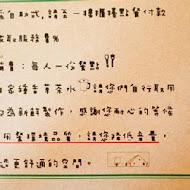 自助式,請至一樓櫃檯點餐付款
收取服務費%
消:每人一份餐點
自家種香草茶水 請您們自行取用
均為新鮮製作,感謝您耐心的等候
用餐環境品質,請您降低音量,
造更舒適的空間。